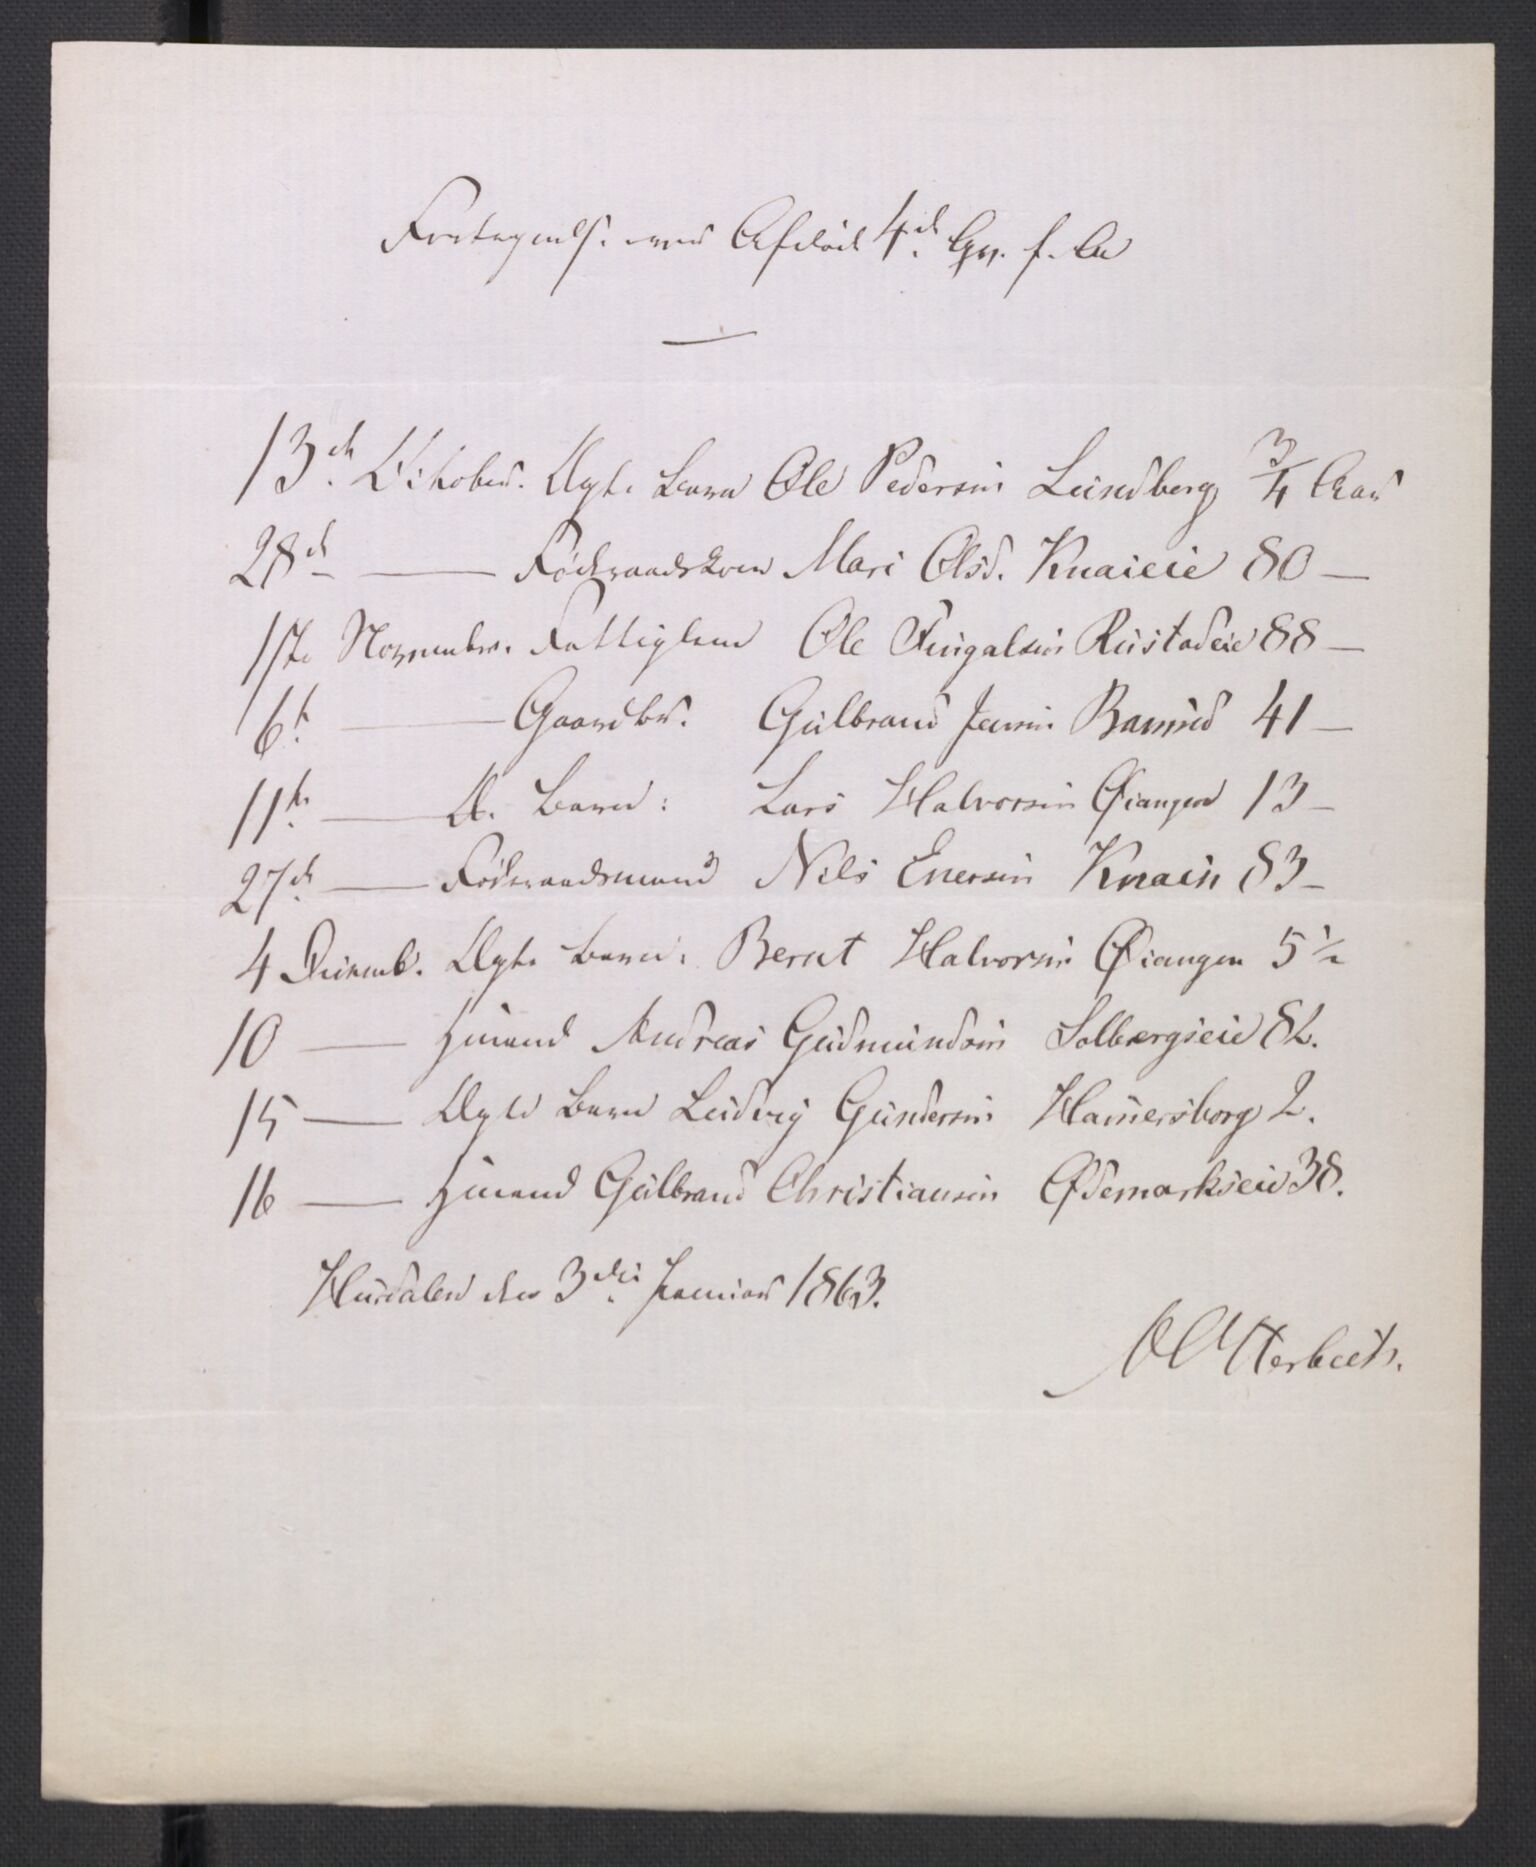 Fortegnelse over Afdøde 4d. Qv. f. A
13de October. Ugte Barn Ole Pedersen Lundberg 3/4 Aar
28de — Føderaadskone Mari Olsd. Knaieie 80 —
1ste November. Fattiglem Ole Fingalsen Rustadeie 88 —
6te — Gaardbr. Gulbrand Jensen 41 —
11te — U. Barn: Lars Halvorsen Øiangen 13 —
27de — Føderaadsmand Nils Enersen Knain 83 —
4 Decemb. Ugte Barn: Bernt Halvorsen Øiangen 5 1/2
10 — Huusmd Andreas Gudmundsen Solbergseie 82.
15 — Ugte Barn Ludvig Gundersen Hamersborg 2.
16 — Huusmd Gulbrand Christiansen Ødemarkseie 38.
Hurdalen den 3die Januar 1863.